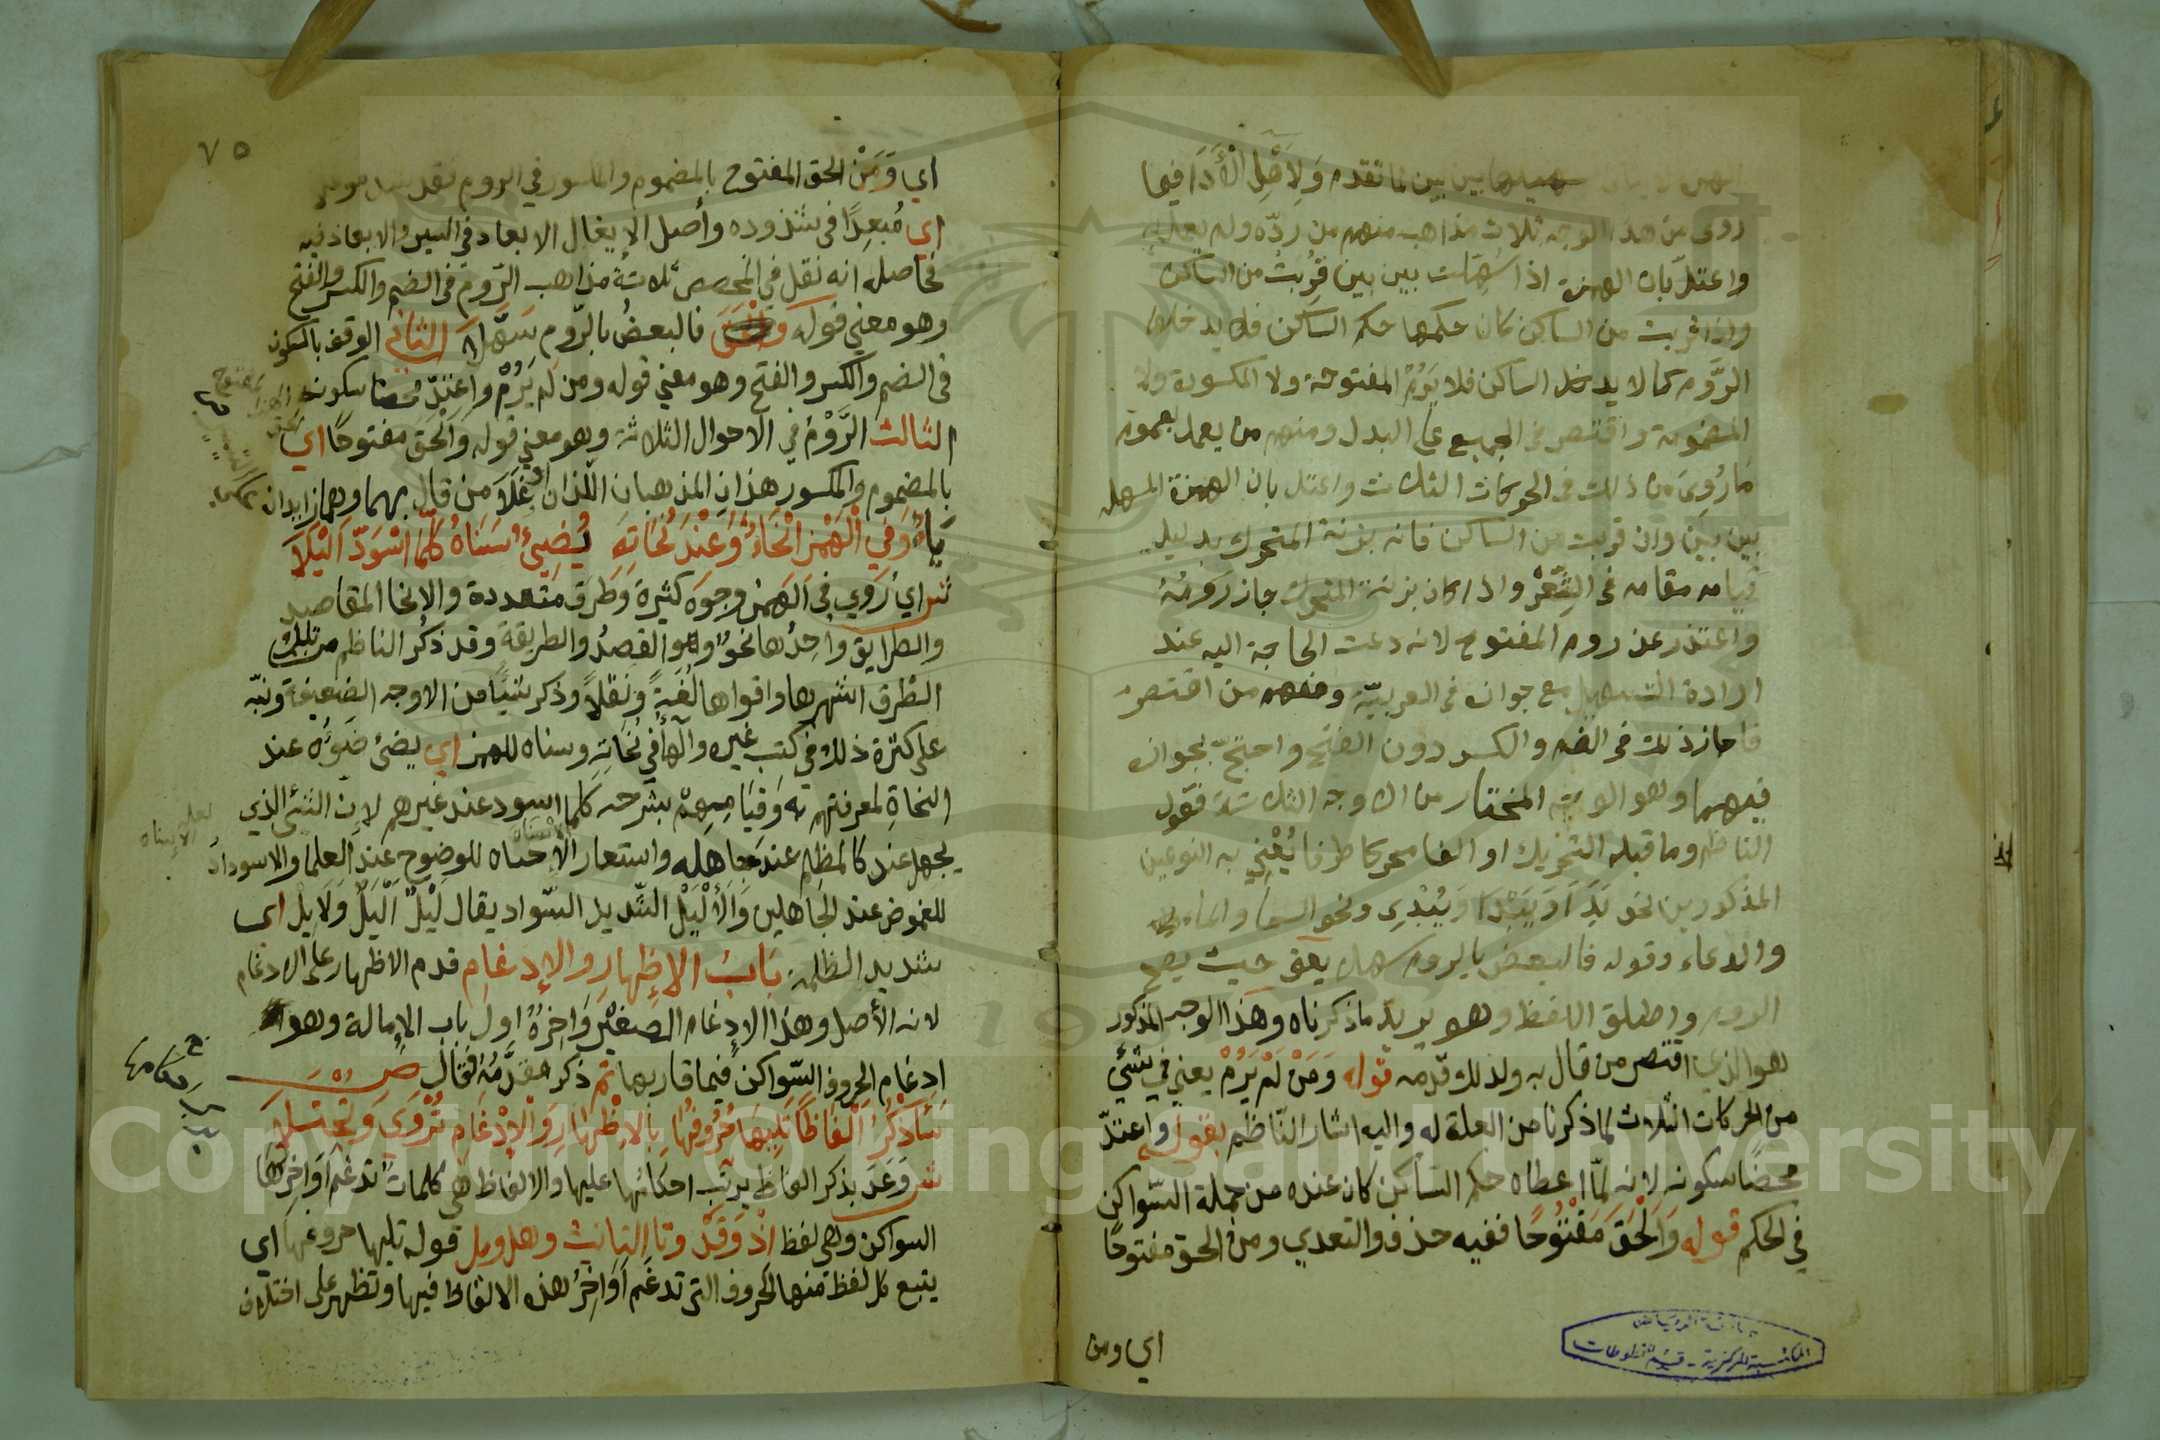 سهيلها بين بين لما تقدم وَلِأَهْلِ الْأَدَا فيها
روى من هذا الوجه ثلاث مذاهب منهم من ردّه ولم يعمل به
واعتلّ بان الهمزة اذا سُهِّلت بين بين قرُبتْ من الساكن
واذا قربت من الساكن كان حكمها حكم الساكن فلا يدخلها
الرَّوم كما لا يدخل الساكن فلا يَرُمْ المفتوحة ولا المكسورة ولا
المضمومة واقتصر في الجميع على البدل ومنهم من يعمل بعموم
مَا رُوِىَ من ذلك في الحركات الثلاث واعتل بان الهمزة المسهله
بين بين وان قربت من الساكن فانه بزنة المتحرك بدليل
قيامه مقامه في الشِّعْرِ واذا كان بزنة المتحرك جاز رَوْمُهُ
واعتذر عن روم المفتوح لانه دعت الحاجة اليه عند
ارادة التسهيل مع جوازه في العربيّة ومنهم من اقتصر
فاجاز ذلك في الضم والكسر دون الفتح واحتجّ بجوازه
فيهما وهو الوجه المختار من الاوجه الثلاثة فقول
الناظم وما قبله التحريك او الفا محركا طرفا يُعْنِي به النوعين
المذكورين نحو بَدَأَ وَيَبْدَا وَيُبْدِي ونحو السما والماء
والدعاء وقوله فالبعض بالروم سهل يعنى حيث يصح
الروم واطلق اللفظ وهو يريد ماذكرناه وهذا الوجه المذكور
هو الذي اقتصر من قال به ولذلك قدّمه قوله وَمَنْ لَمْ يَرُمْ يعني في شئي
من الحركات الثلاث لما ذكرنا من العلة له واليه اشار النّاظم بقوله واعتدّ
محضًا سكونه لانه لمّا اعطاه حكم السّاكن كان عنده من جملة السّواكن
في الحكم قوله وَاَلْحَقَ مَفْتُوحًا ففيه حذف والتعدي ومن الحق مفتوحًا
اي ومن
٧٥
اي وَمَنْ الحق المفتوح بالمضموم والمكسور في الروم فقد شذ موغلا
اي مُبعِدًا في شذوذه وأصل الايغال الابعاد في السير والابعاد فيه
فحاصله انه نقل في المخصص ثلاثةُ مذاهب الرّوم في الضم والكسر والفتح
وهو معني قوله فالبعضُ بالرّوم سَهَّلَا الثاني الوقف بالسكون
في الضم والكسر والفتح وهو معني قوله ومن لم يَرُمْ واعتدّ محضا سكونه
الثالث الرَّوْمُ في الاحوال الثلاثة وهو معني قوله وَالْحَق مفتوحًا اي
بالمضموم والمكسور هذان المذهبان اللذان أوغلَا من قال بهما وهما زايدان
بَاءٌ وَفِي الْهَمْزِ اَنْحَاءٌ وَعِنْدَ نُحَاتِهِ يُضِيئُ سَنَاهُ كُلَّمَا اسْوَدَّ اَلْيَلَا
ش اي رُوي في الهمز وجوه كثيرة وطرق متعددة والانحا المقاصد
والطرايق واحِدُها نحوٌ وهو القصدُ والطريقة وقد ذكر الناظم من تلك
الطرق اشهرها واقواها لُغَةً ونقلاً وذكر شيًا من الاوجه الضعيفة ونبّه
على كثرة ذلك في كتب غيره والهأ في نُحَاتِهِ وسناه للهمز اي يضئ ضَوُه عند
النحاةِ لمعرفتهم به وَقيَامِهِمْ بشرحه كلما اسود عند غيرهم لان الشئ الذي
يجهل عند كالمظلم عند جاهله واستعار الاضاه للوضوح عند العلما والاسوداد
للغموض عند الجاهلين وَالَالْيَلْ الشّديد السّواد يقال لَيْلٌ اَلْيَلُ وَلَايِل اى
شديد الظلمة بَابُ الاِظهارِ والاِدغامِ قدم الاظهار على الادغام
لانه الأصل وهذا الادغام الصغير وَاخِرهُ اول باب الإمالة وهو
ادغام الحروف السّواكن فيما قاربها ثم ذكر مقدَّمُة فقال ص
سَأَذْكُرُ اَلْفَاظًا تَلِيهَا حُرُوفُهَا بِالاِظْهَارِ وَالْاِدْغَامِ تُرْوَى وَتُجْتَلَا
ش وَعَدَ بذكر الفاظ يرتب احكامُها عليها والالفاظ هي كلماتٌ تدغم اَوَاخِرُهَا
السواكن وهي لفظ اذْ وَقَدْ وتا التانيث وهل وبل قوله تليها حروفها اي
يتبع كل لفظة منها الحروف التي تدغم اَوَاخِرُ هذه الالفاظ فيها وتظهر على اختلاف
المكتبة المركزية - قسم المخطوطات
Copyright © King Saud University